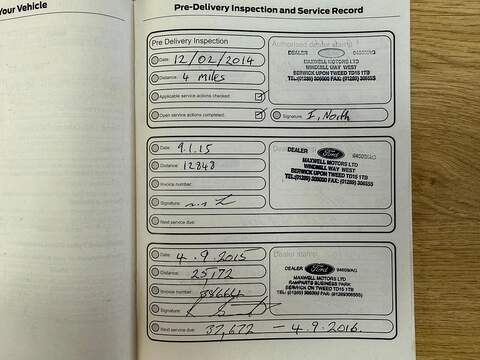 Your Vehicle
Pre-Delivery Inspection and Service Record
Pre Delivery Inspection
Date: 12/02/2014
Distance: 4 MILES
Applicable service actions checked:
Open service actions completed:
Authorised dealer stamp
DEALER Ford 94609/AG
MAXWELL MOTORS LTD
WINDMILL WAY WEST
BERWICK UPON TWEED TD15 1TB
TEL:(01289) 306600 FAX: (01289) 306555
Signature: I. North
Date: 9.1.15
Distance: 12848
Invoice number:
Signature:
Next service due:
DEALER Ford
MAXWELL MOTORS LTD
WINDMILL WAY WEST
BERWICK UPON TWEED TD15 1TB
FAX: (01289) 306555
Date: 4.9.2015
Distance: 25,172
Invoice number:
Signature:
Dealer stamp
DEALER Ford
MAXWELL MOTORS LTD
RAMPARTS BUSINESS PARK
BERWICK ON TWEED TD15 1TB
Next service due: 37,672 – 4.9.2016.